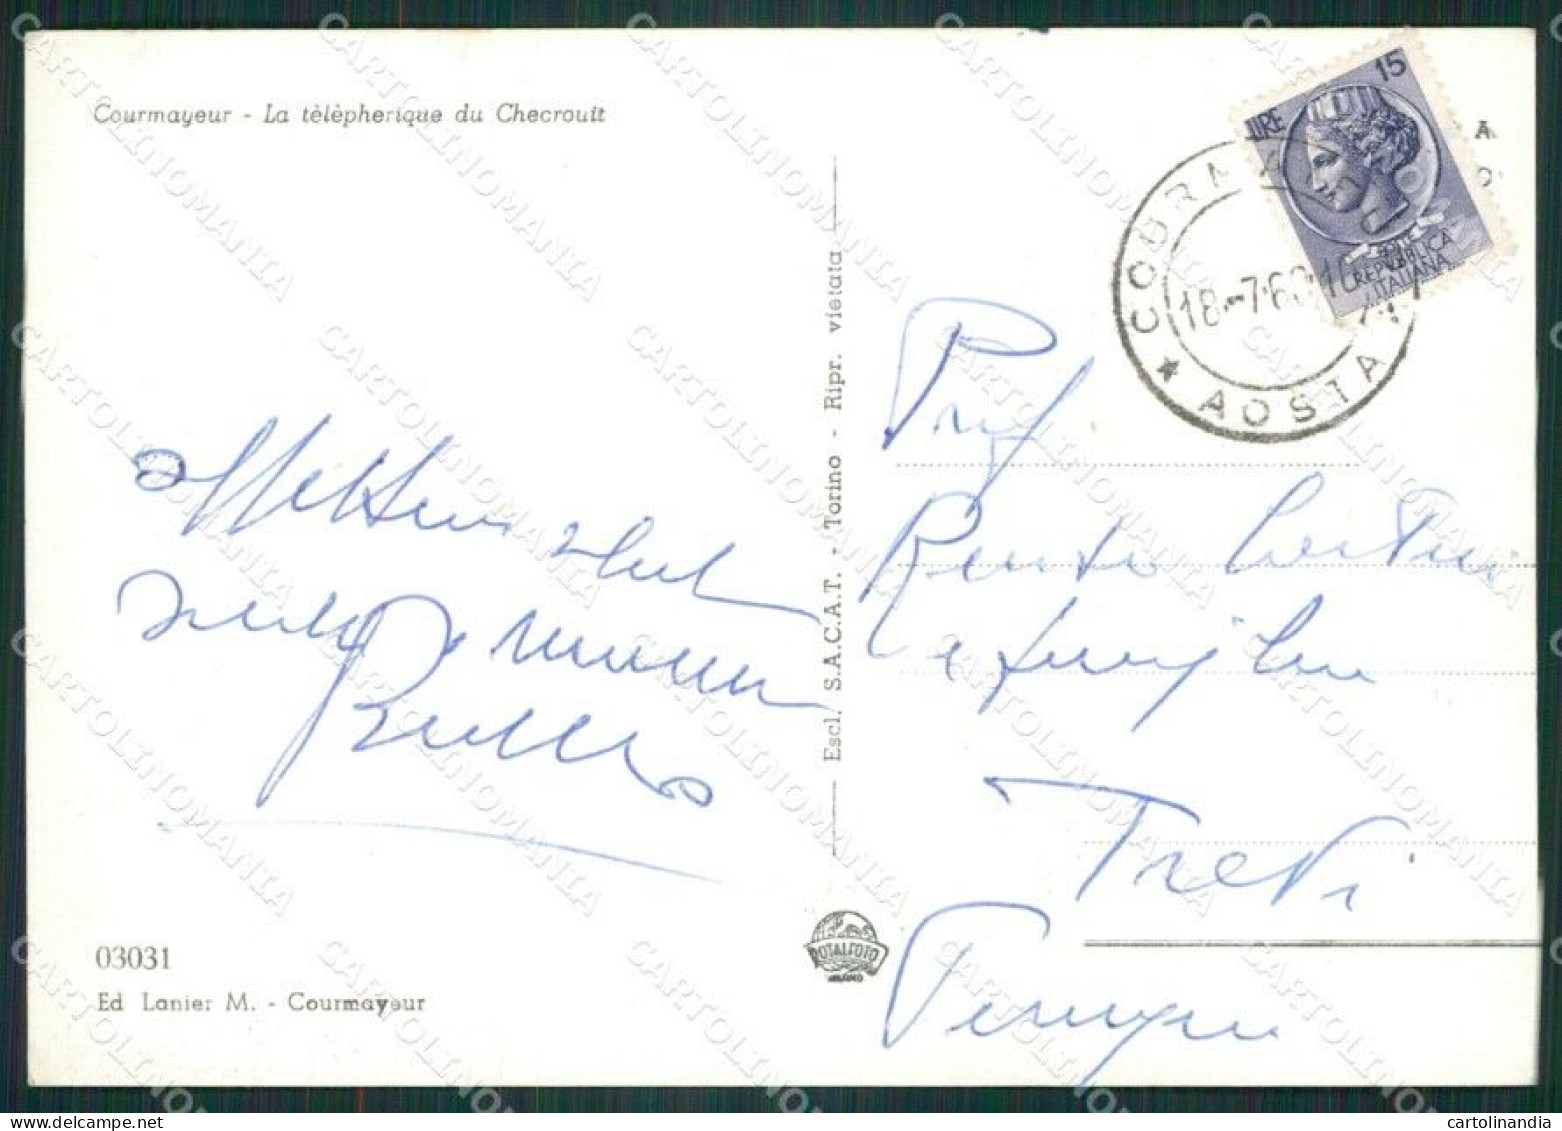 Courmayeur - La tèlèpherique du Checrouit
15
LIRE
REPUBBLICA
ITALIANA
AOSTA
18-7-60
Prof.
Renato
e famiglia
Trevi
Perugia
Affettuosi saluti
Escl. S.A.C.A.T. - Torino - Ripr. vietata
ROTALFOTO
MILANO
03031
Ed Lanier M. - Courmayeur
CARTOLINOMANIA
cartolinandia